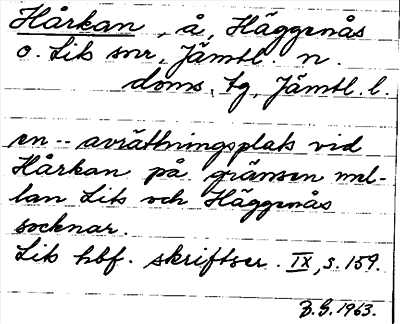 Hårkan, å, Häggenås
o. Lits snr, Jämtl. n.
doms. tg, Jämtl. l.
en -- avrättningsplats vid
Hårkan på gränsen mel-
lan Lits och Häggenås
socknar.
Lits hbf. skriftser. IX, s. 159.
B.G. 1963.